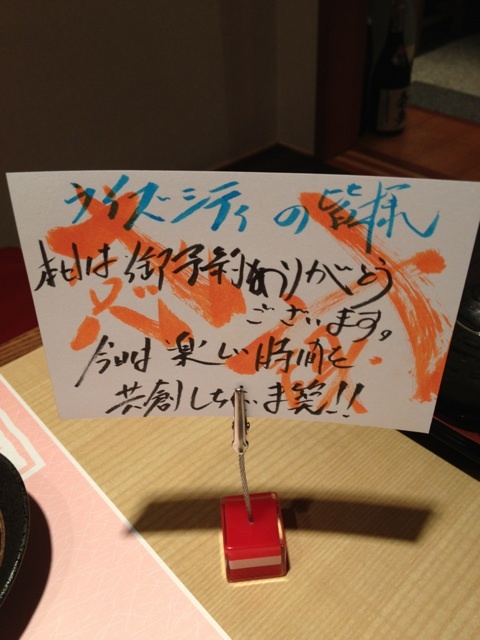 ワイズシティの皆様
本日は御予約ありがとう
ございます。
今日は楽しい時間を
共創しちゃいま笑!!
感謝